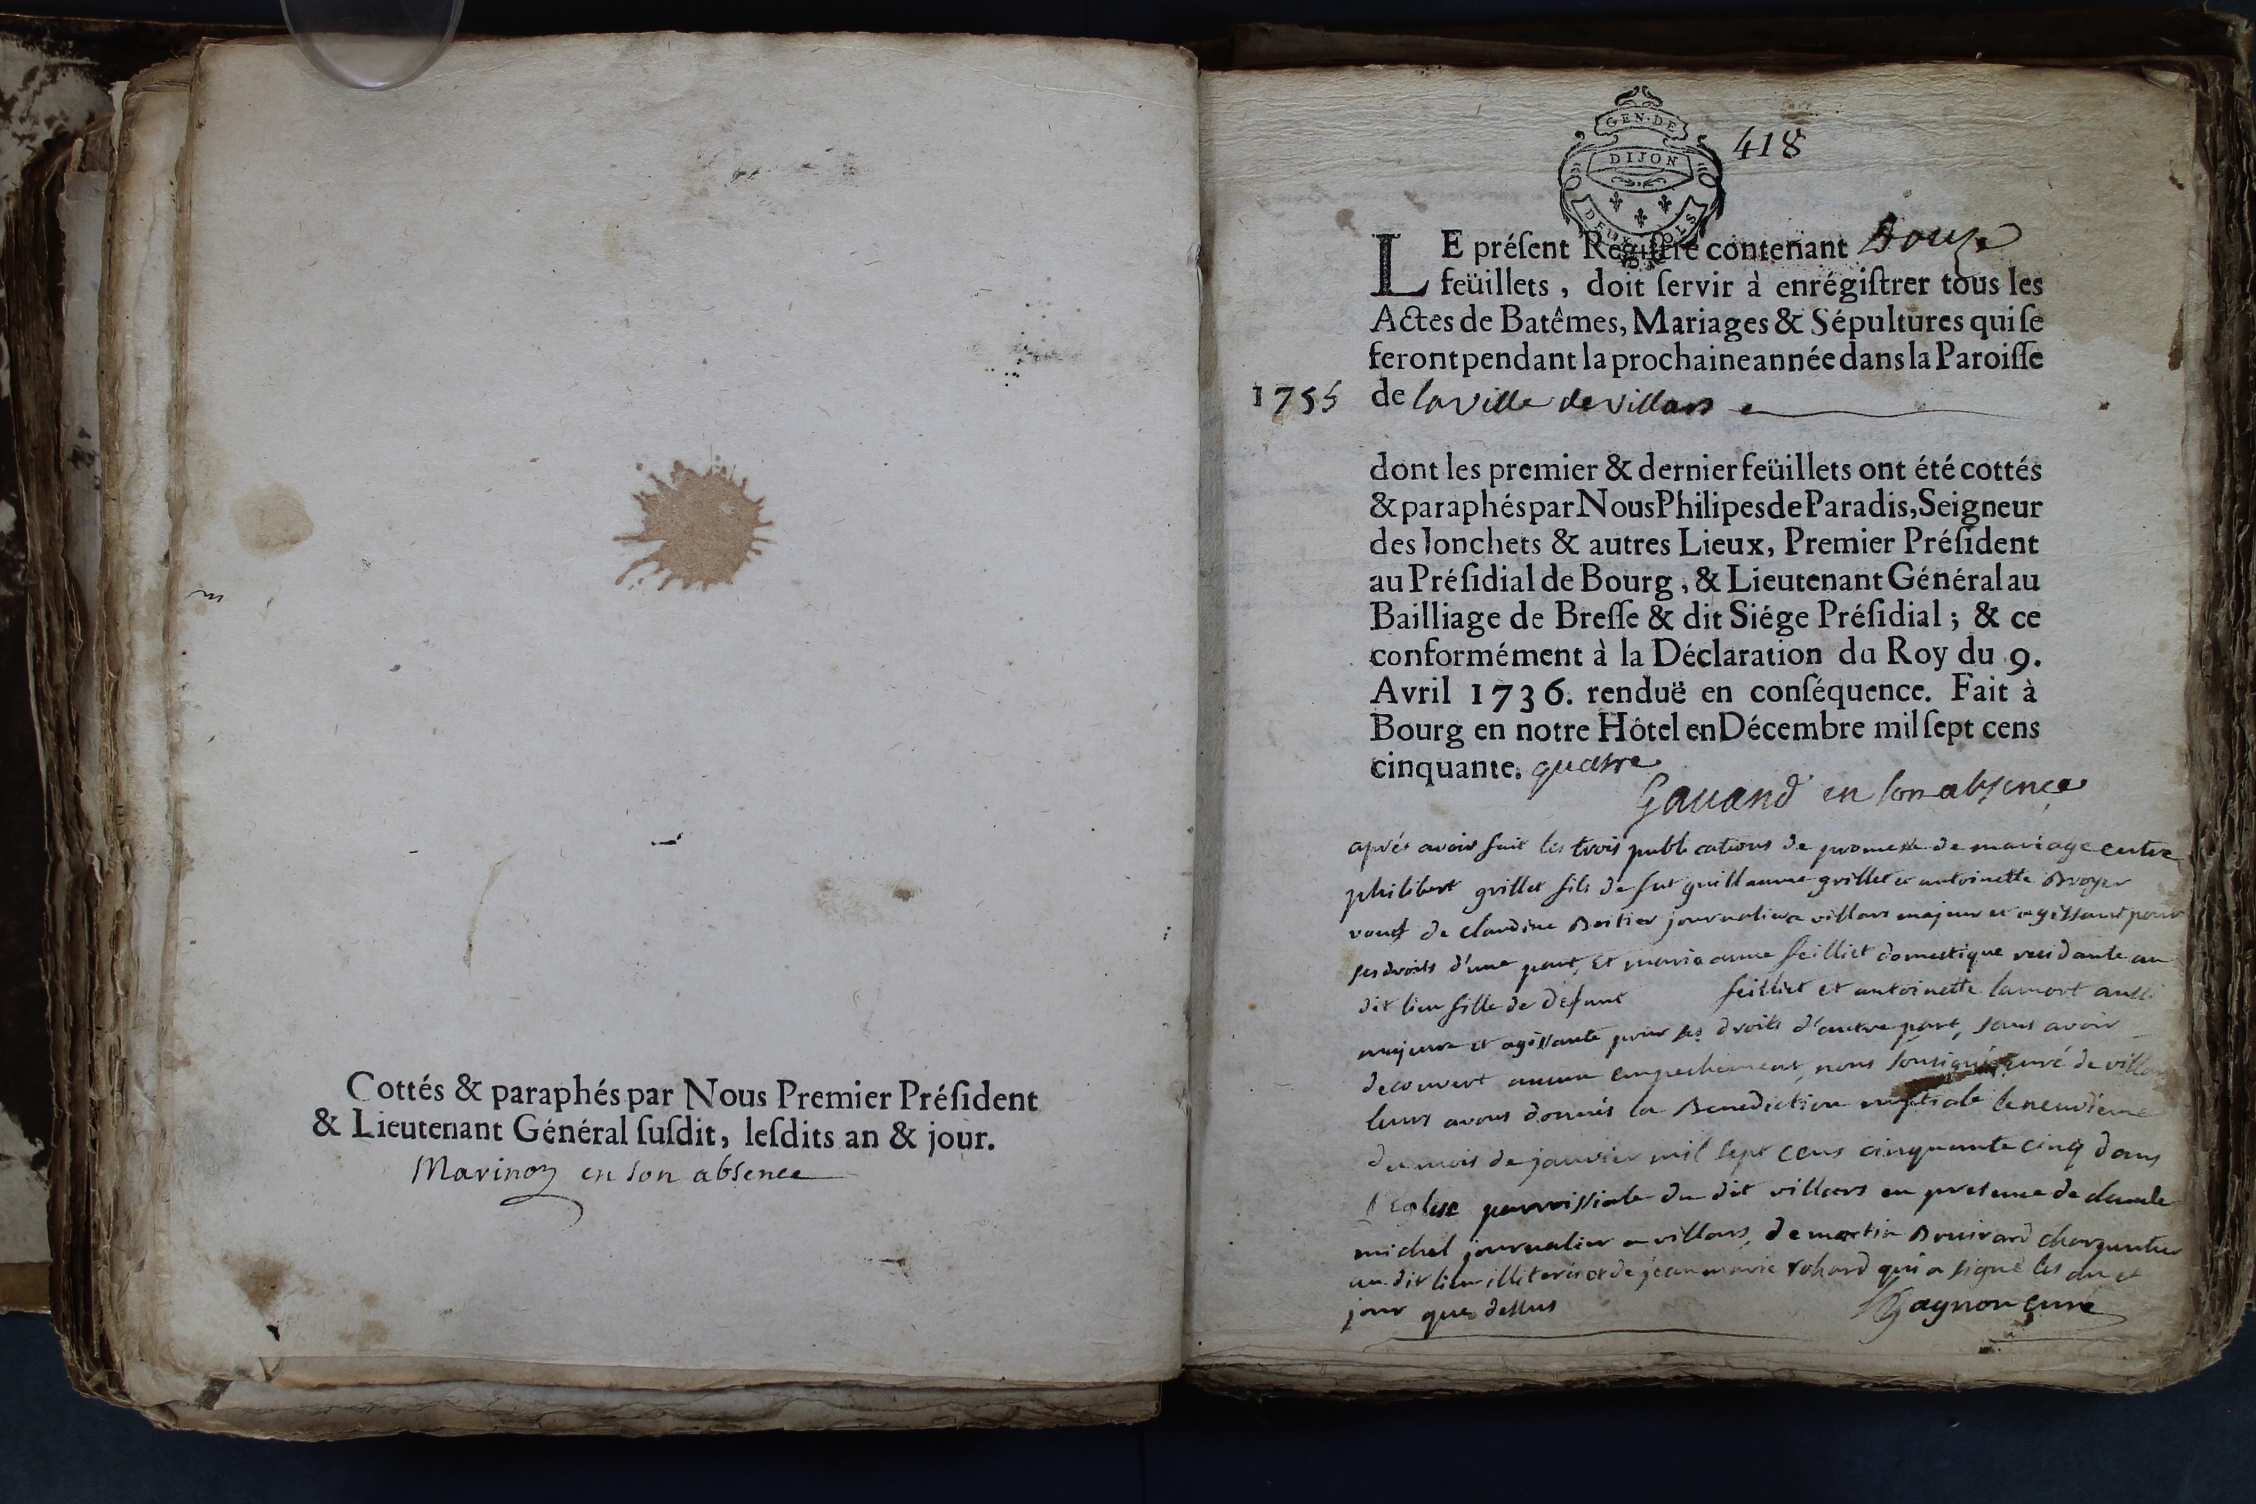 Cottés & paraphés par Nous Premier Préſident
& Lieutenant Général ſuſdit, leſdits an & jour.
Marinon en son absence
GEN·DE
DIJON
DEUX SOLS
418
LE préſent Regiſtre contenant Douze
feüillets, doit ſervir à enrégiſtrer tous les
Actes de Batêmes, Mariages & Sépultures qui ſe
feront pendant la prochaine année dans la Paroiſſe
1755 de la ville de villars
dont les premier & dernier feüillets ont été cottés
& paraphés par Nous Philipes de Paradis, Seigneur
des Jonchets & autres Lieux, Premier Préſident
au Préſidial de Bourg, & Lieutenant Général au
Bailliage de Breſſe & dit Siége Préſidial; & ce
conformément à la Déclaration du Roy du 9.
Avril 1736. renduë en conſéquence. Fait à
Bourg en notre Hôtel en Décembre mil ſept cens
cinquante. quatre
Gauand en son absence
aprés avoir fait les trois publications de promesse de mariage entre
philibert grillet fils de fut guillaume grillet et antoinette Broyer
veuf de claudine journalier a villars majeur et agissant pour
ses droits d'une part, Et marie anne feilliet domestique residante au
dit lieu fille de defunt feilliet et antoinette lamort aussi
majeure et agissante pour ses droits d'autre part, sans avoir
decouvert aucun empechement, nous sousigné curé de villars
leurs avons donnés la Benediction nuptiale le neuvieme
du mois de janvier mil sept cens cinquante cinq dans
l'Eglise parroissiale du dit villars en presence de claude
michel journalier a villars, de martin Bouvard charpentier
au dit lieu illiterés et de jean marie rohard qui a signé les an et
jour que dessus Gagnon curé